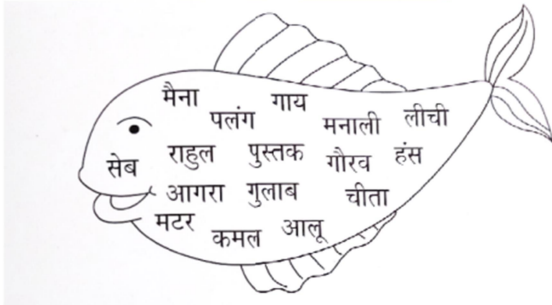 मैना गाय
पलंग मनाली लीची
सेब राहुल पुस्तक गौरव हंस
आगरा गुलाब चीता
मटर कमल आलू